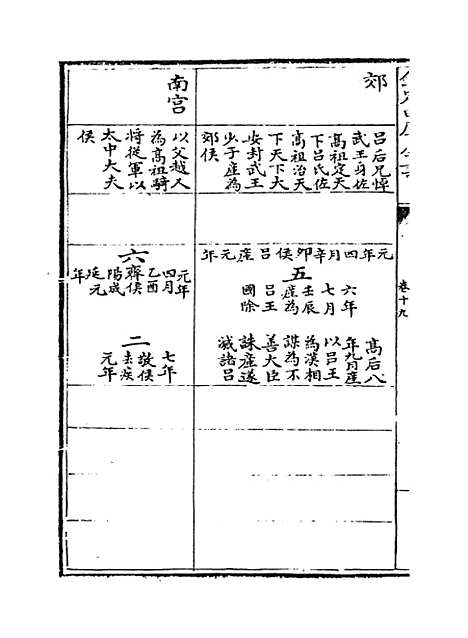 卷十九
郊
呂后兄悼
武王身佐
高祖定天
下呂氏佐
高祖治天
下天下大
安封武王
少子產為
郊侯
元年四月辛卯侯呂產元年
五
六年
七月
壬辰
產為
呂王
國除
高后八
年九月產
以呂王
為漢相
謀為不
善大臣
誅產遂
滅諸呂
南宮
以父越人
為高祖騎
將從軍以
太中大夫
侯
六
元年
四月
乙酉
齊侯
陽成
延元
年
二
七年
敬侯
去疾
元年